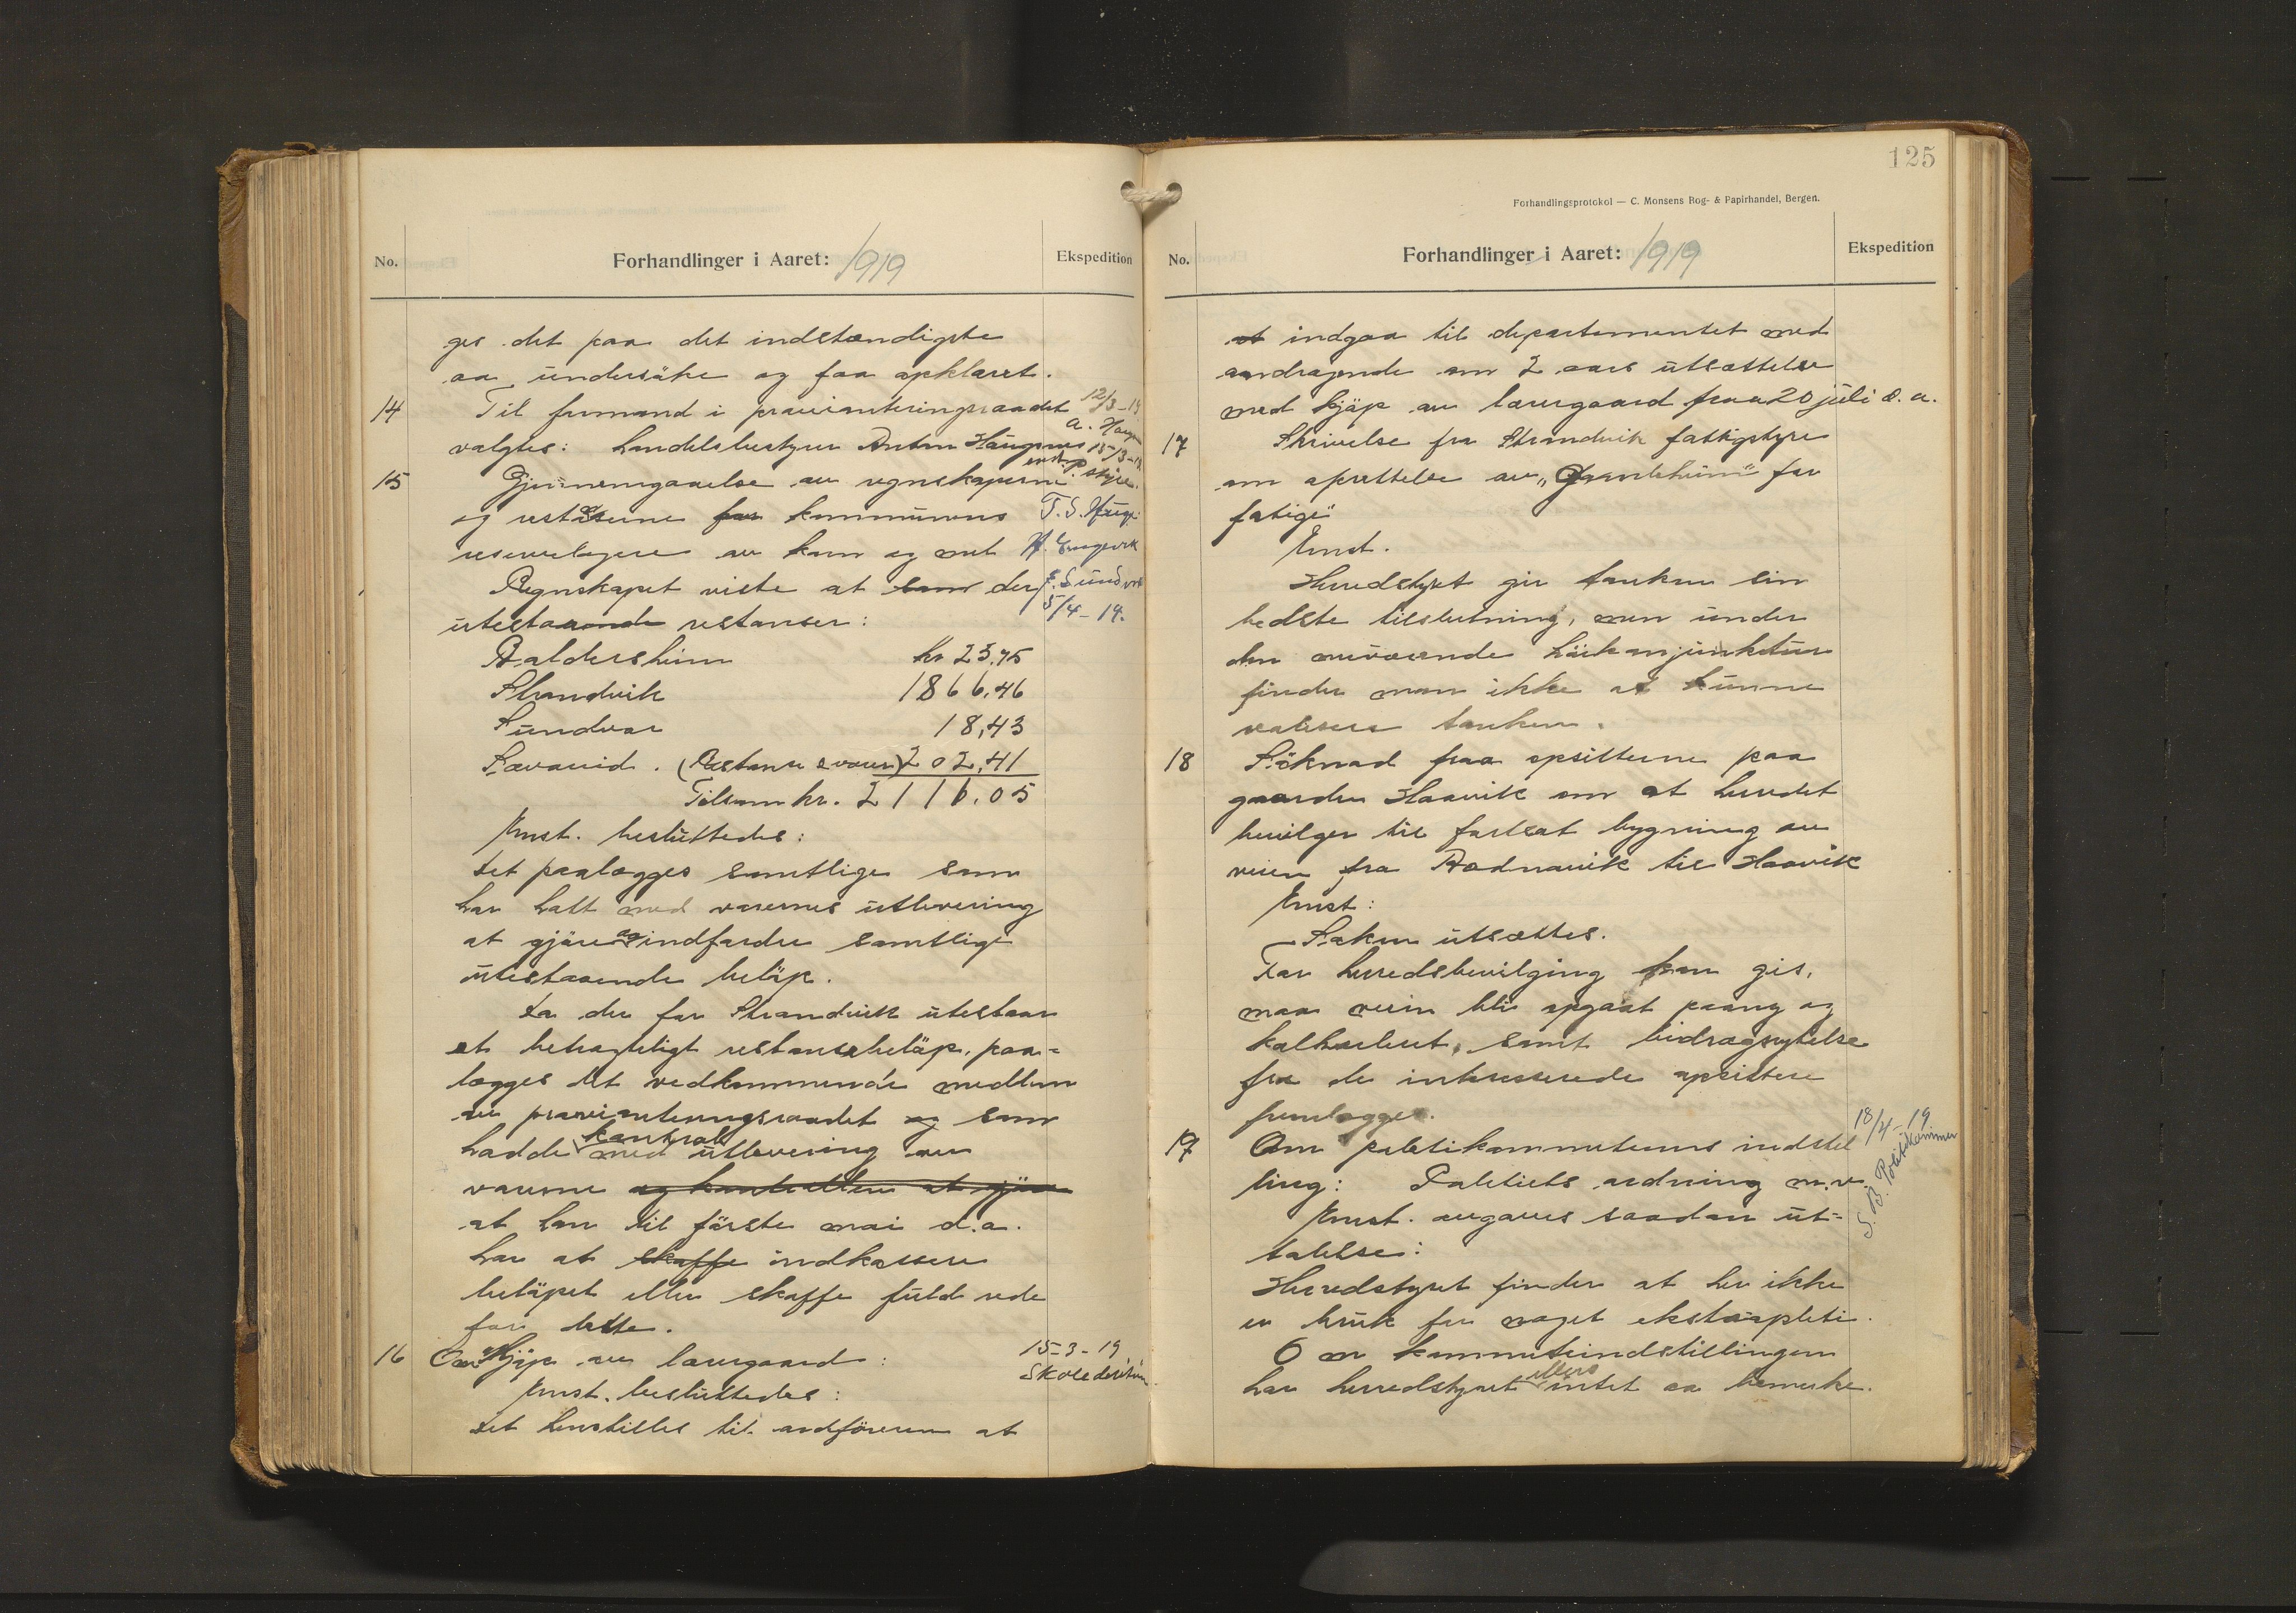 No.
Forhandlinger i Aaret: 1919
Ekspedition
ges det paa det indstændigste
aa undersöke og faa opklaret.
14 Til formand i provianteringsraadet 12/3-19
valgtes: handelsbestyrer Anton Haugsnes 15/3-19
15 Gjennemgaaelse av regnskaperne
og restanserne for kommunens
reservelagere av korn og mel
Regnskapet viste at som der
utestaaende restanser:
Baldersheim Kr 23,75
Strandvik 1866,46
Sundvor 18,43
Sævareid. (Restanse varer) 202,41
Tilsam kr. 2116.05
Enst. besluttedes:
Det paalægges samtlige som
har hatt med varernes utlevering
at gjöre og indfordre samtlige
utestaaende belöp.
Da der for Strandvik utestaar
et betragteligt restansebelöp, paa-
lægges det vedkommende medlem
av provianteringsraadet og som
hadde kontrol med utlevering av
varerne og kontrollen at gjöre
at han til förste mai d.a.
har at skaffe indkassere
belöpet eller skaffe fuld rede
for dette.
16 Om kjöp av lærergaard: 15-3-19
Enst. besluttedes:
Det henstilles til ordföreren at
T. S. Hauge
H. Engevik
5/4-19.
125
Forhandlingsprotokol — C. Monsens Bog- & Papirhandel, Bergen.
No.
Forhandlinger i Aaret: 1919
Ekspedition
at indgaa til departementet med
andragende om 2 aars utsættelse
med kjöp av lærergaard fra 20 juli d.a.
17 Skrivelse fra Strandvik fattigstyre
om oprettelse av „Gamleheim" for
fatige
Enst.
Herredstyret gir tanken sin
bedste tilslutning, men under
den nuværende höikonjunktur
finder man ikke at kunne
realisere tanken.
18 Söknad fra opsitterne paa
gaarden Haavik om at herredet
bevilger til fortsat bygning av
veien fra Bodnavik til Haavik
Enst:
Saken utsættes.
Før herredsbevilging kan gis,
maa veien bli opgaat paany og
kalkulert, samt bidragsytelse
fra de interesserede opsittere
fremlægges.
19 Om politikommiteens indstil 18/4-19
ling: Politiets ordning m.v. S. B. Politikammer
Enst. avgaves saadan ut-
talelse:
Herredstyret finder at her ikke
er bruk for noget ekstrapoliti.
Om kommiteindstillingen
har herredstyret ellers intet aa bemerke.